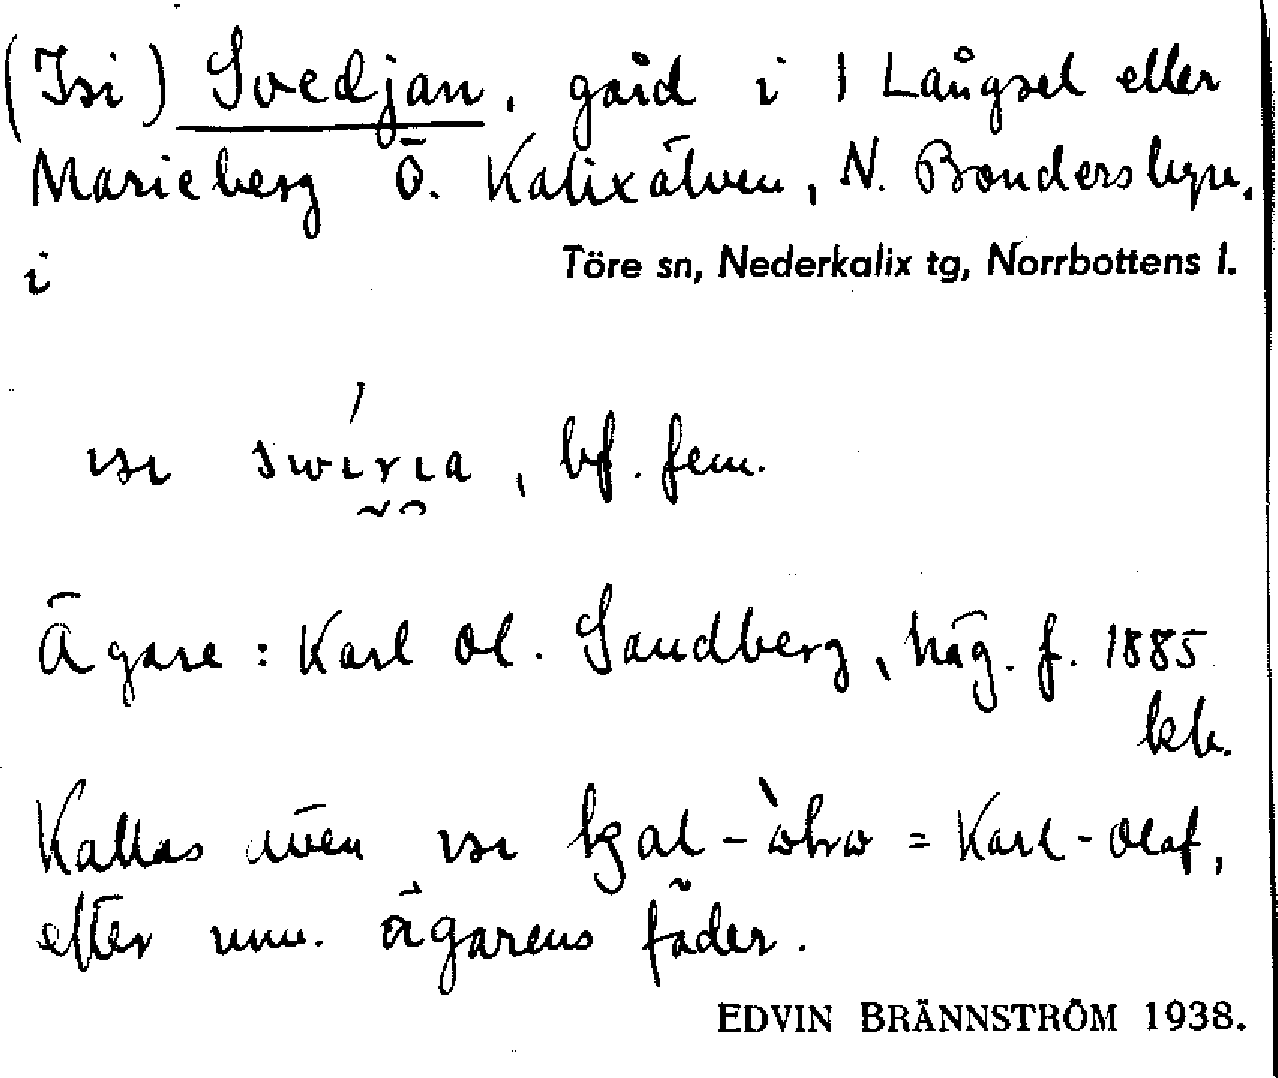 (Isi) Svedjan, gård i 1 Långsel eller
Marieberg Ö. Kalixälven, N. Bondersbyn,
i Töre sn, Nederkalix tg, Norrbottens l.
ɪsɪ swɪ́rɪa, bf. fem.
Ägare: Karl Ol. Sandberg, häg. f. 1885
kb.
Kallas även ɪsɪ kal-= Karl-Olof,
efter nuv. ägarens fader.
EDVIN BRÄNNSTRÖM 1938.